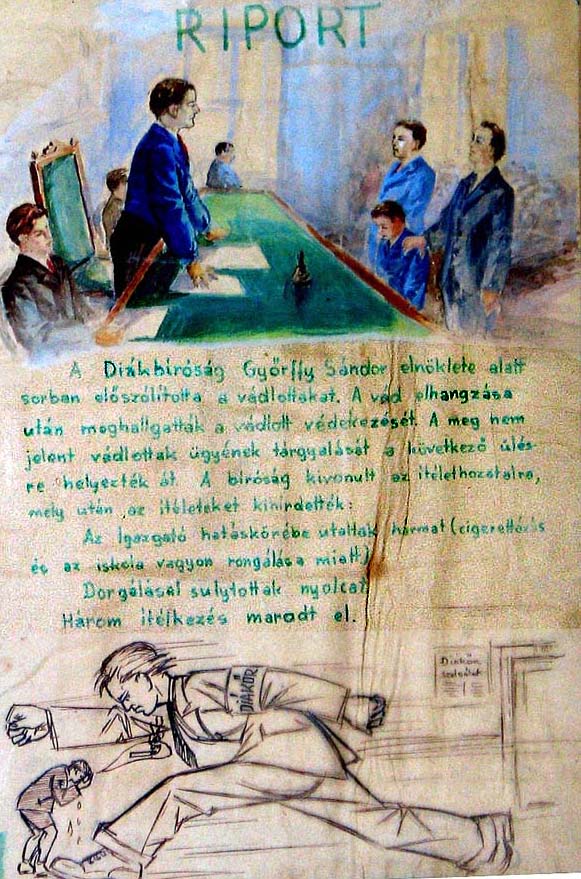 RIPORT
A Diákbíróság Győrffy Sándor elnöklete alatt
sorban előszólította a vádlottakat. A vád elhangzása
után meghallgatták a vádlott védekezését. A meg nem
jelent vádlottak ügyének tárgyalását a következő ülés-
re helyezték át. A bíróság kivonult az ítélethozatalra,
mely után az ítéleteket kihirdették:
Az Igazgató hatáskörébe utaltak hármat (cigerettázás
és az iskola vagyon rongálása miatt)
Dorgálással sulytottak nyolcat
Három ítélkezés maradt el.
DIÁKŐR
Diákőr
szolgálat